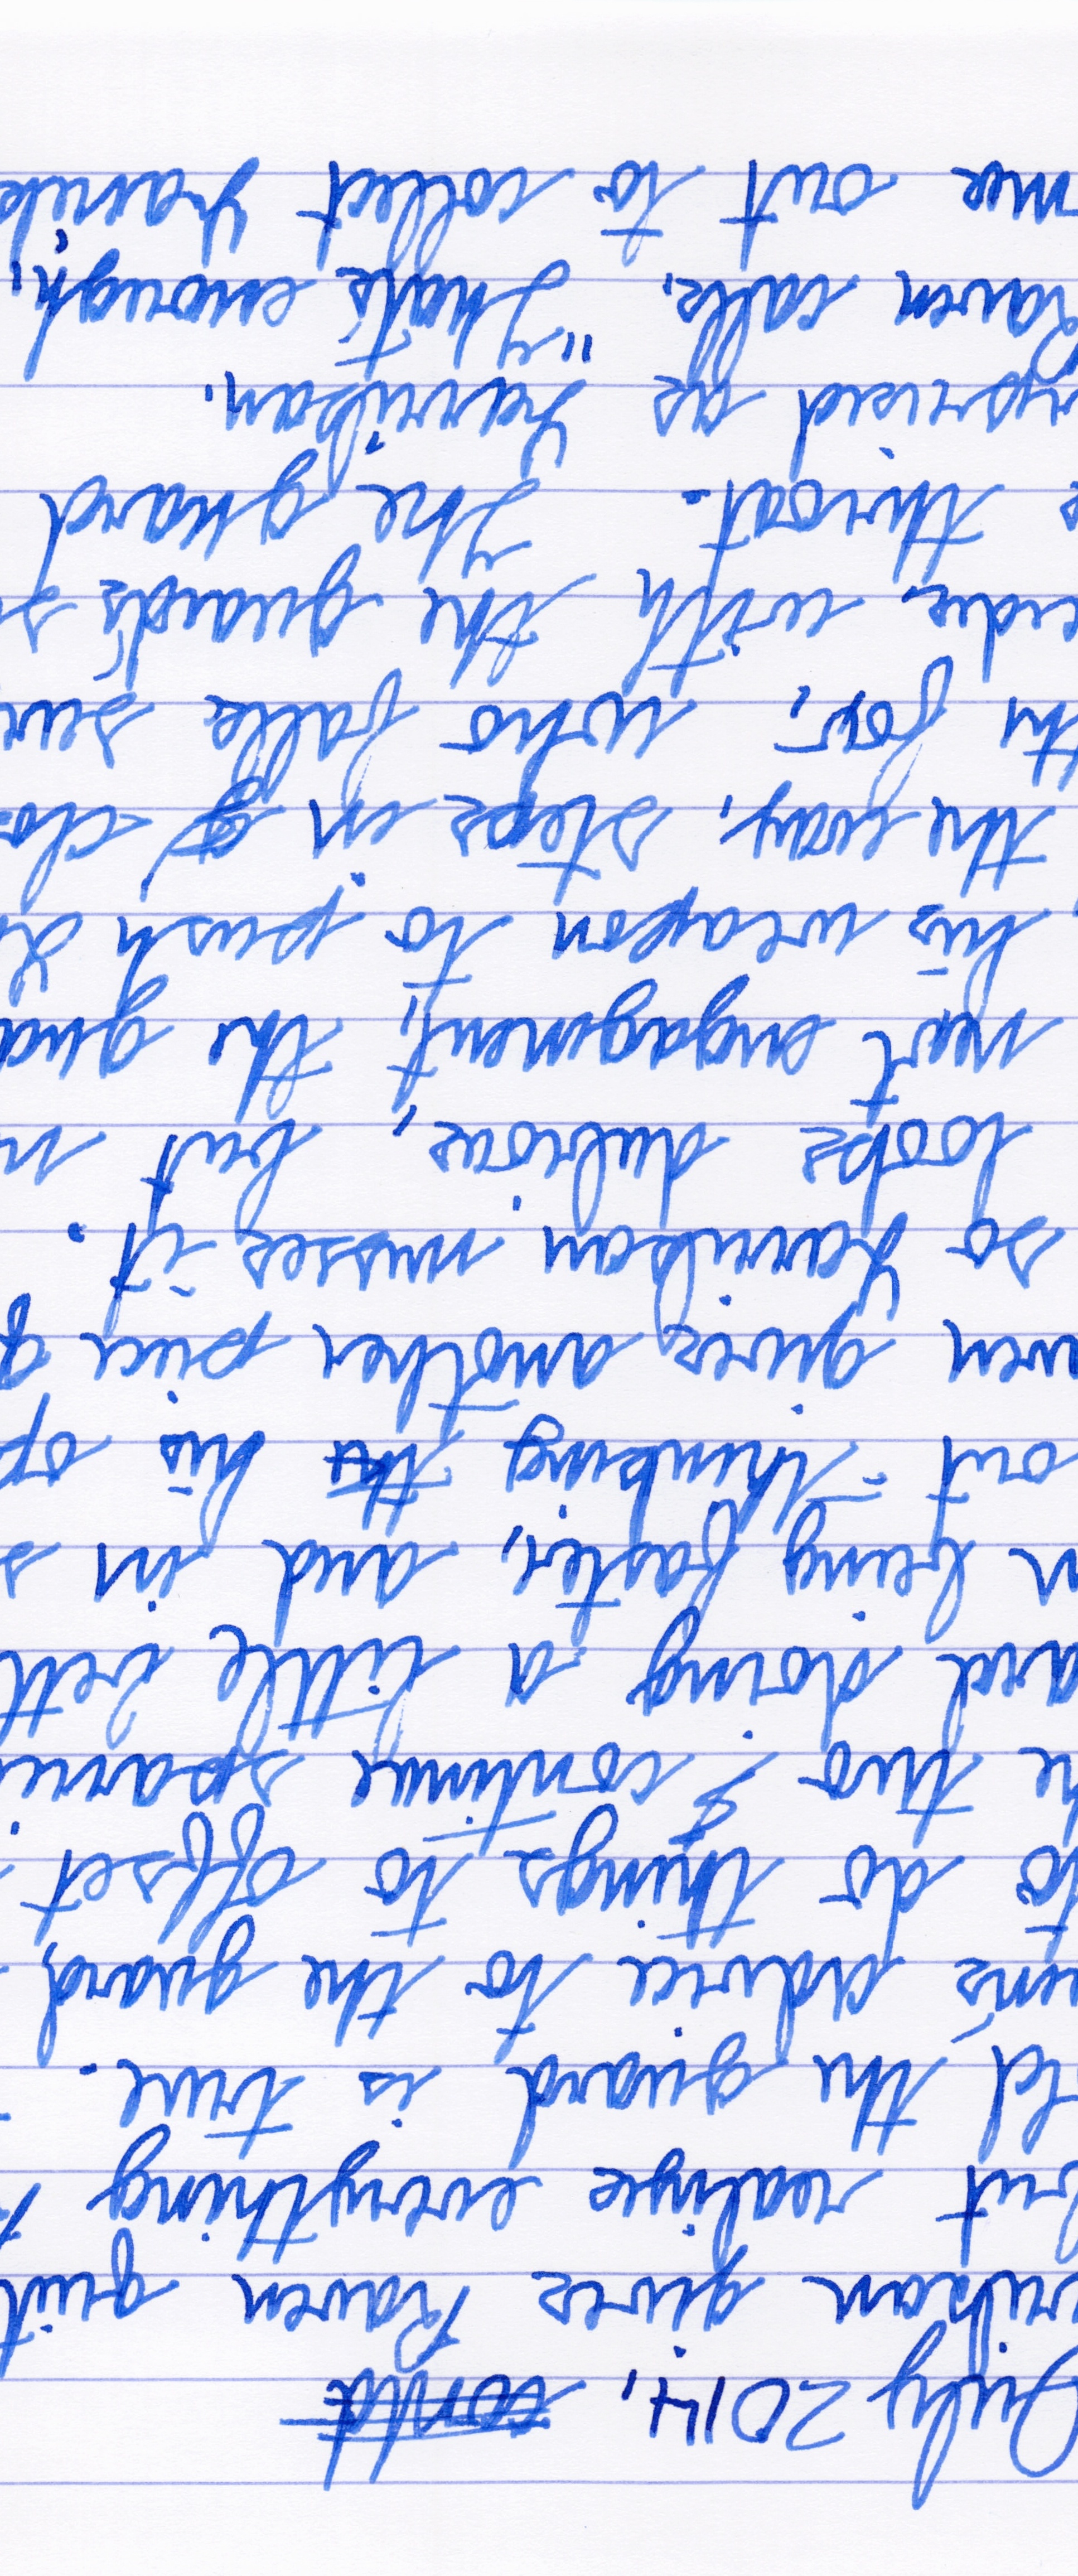 July 2014, could
rikan gives Raven quit
but realize everything
ld the guard is true.
en's advice to the guard,
to do things to offset
he two & continue sparri
and doing a little bett
n being faster, and in s
out-thinking the his op
ven gives another piece o
so Yarrikan misses it.
looks dubious, but n
next engagement, the gua
his weapon to push Ya
the way, steps in & clo
for, who falls sur
with the guard's s
e throat. The guard
rprised as Yarrikan.
Raven calls, "That's enough,"
me out to collect Yarrik